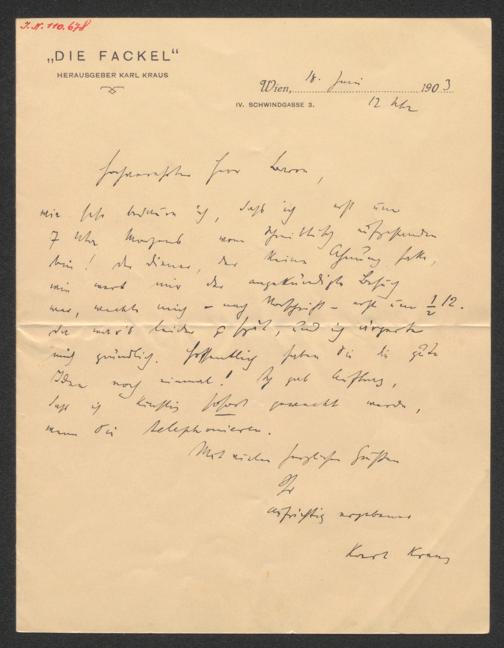 I.N. 110.678
„DIE FACKEL“
HERAUSGEBER KARL KRAUS
Wien, 18. Juni 1903
IV. SCHWINDGASSE 3. 12 Uhr
Hochverehrter Herr Baron,
wie sehr bedaure ich, daß ich erst um
7 Uhr Morgens vom Schreibtisch aufgestanden
bin! Der Diener, der keine Ahnung hatte,
wie wert mir der angekündigte Besuch
war, weckte mich – nach Vorschrift – erst um ½ 12.
Da war's leider zu spät, und ich ärgerte
mich gründlich. Hoffentlich haben Sie die gute
Idee noch einmal! Ich gab Auftrag,
daß ich künftig sofort geweckt werde,
wenn Sie telephonieren.
Mit vielen herzlichen Grüßen
Ihr
aufrichtig ergebener
Karl Kraus